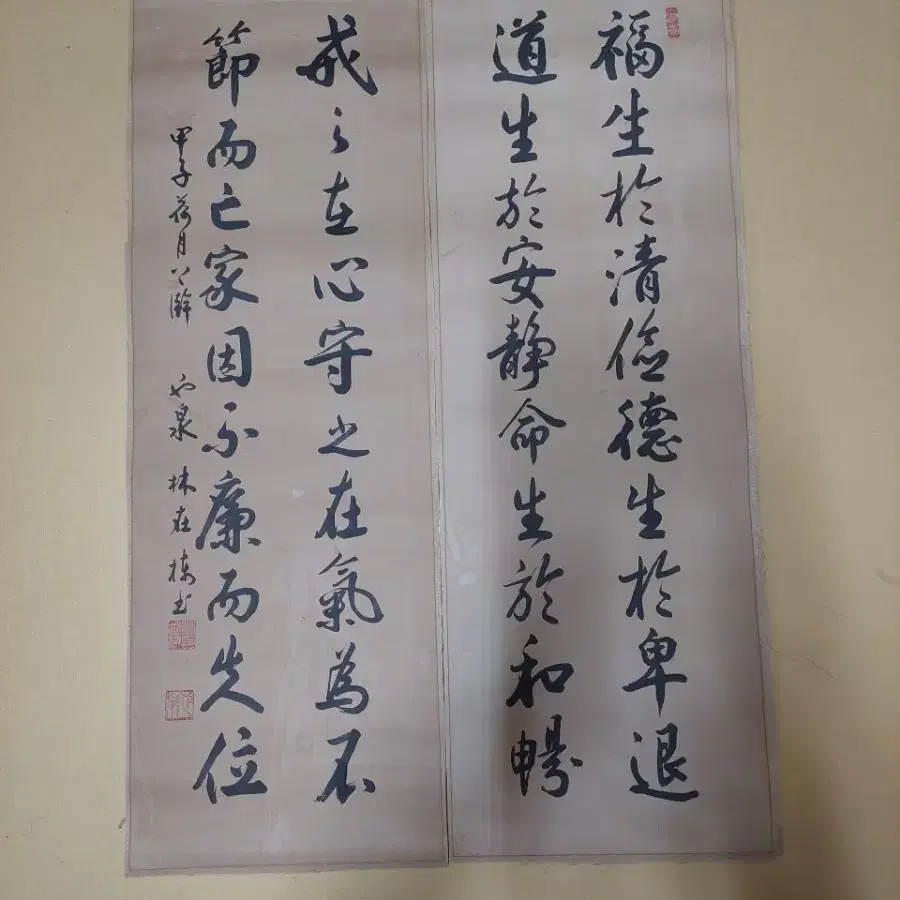 福生於清儉德生於卑退
道生於安靜命生於和暢
戒之在心守之在氣為不
節而亡家因不廉而失位
甲子荷月 泉 林在棟書